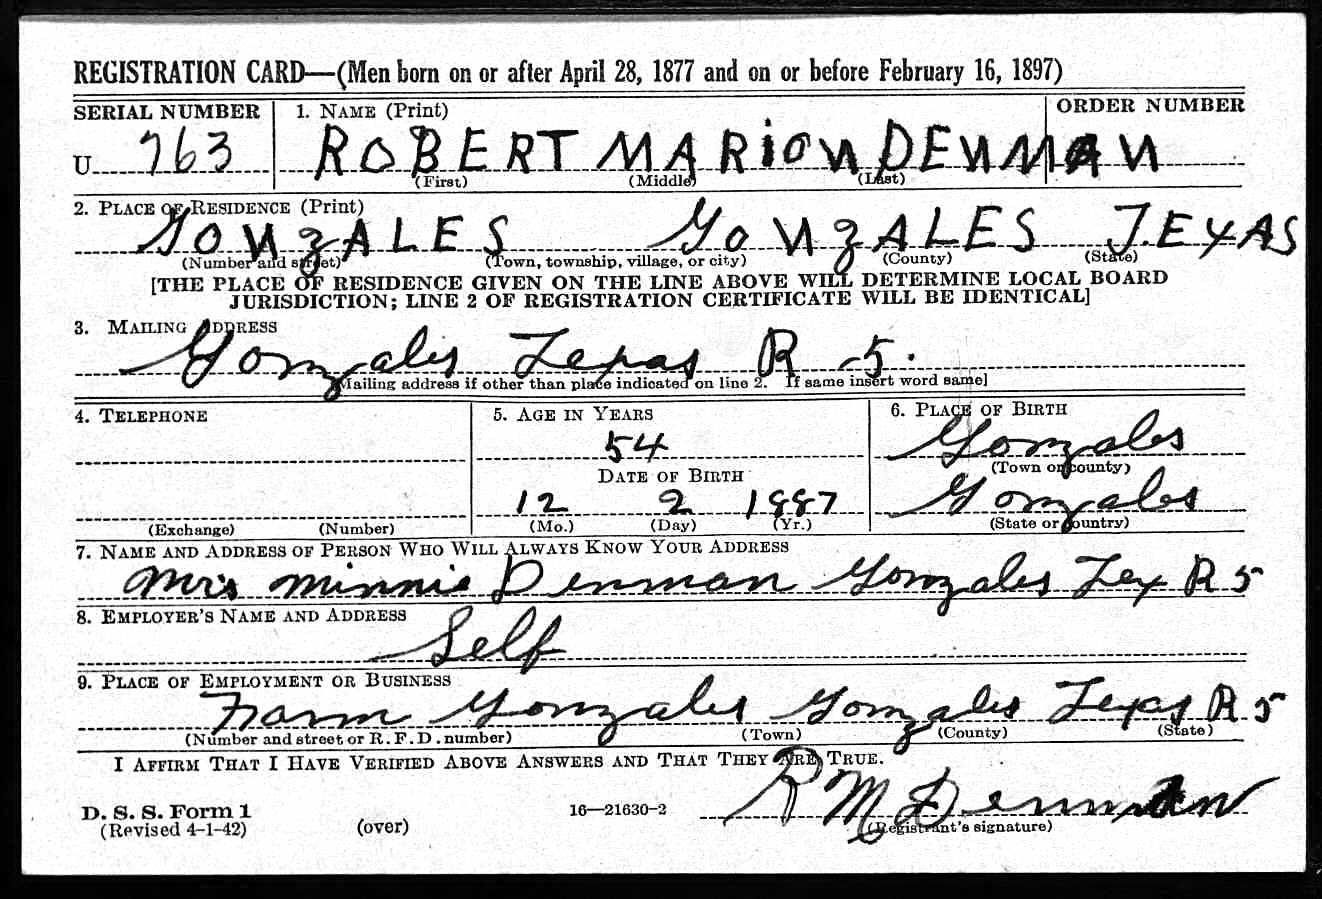 REGISTRATION CARD—(Men born on or after April 28, 1877 and on or before February 16, 1897)
SERIAL NUMBER 1. NAME (Print) ORDER NUMBER
U 763 ROBERT MARION DENMAN
(First) (Middle) (Last)
2. PLACE OF RESIDENCE (Print)
GONZALES GONZALES TEXAS
(Number and street) (Town, township, village, or city) (County) (State)
[THE PLACE OF RESIDENCE GIVEN ON THE LINE ABOVE WILL DETERMINE LOCAL BOARD
JURISDICTION; LINE 2 OF REGISTRATION CERTIFICATE WILL BE IDENTICAL]
3. MAILING ADDRESS
Gonzales Texas R-5.
[Mailing address if other than place indicated on line 2. If same insert word same]
4. TELEPHONE 5. AGE IN YEARS 6. PLACE OF BIRTH
54 Gonzales
(Town or county)
DATE OF BIRTH
12 2 1887 Gonzales
(Exchange) (Number) (Mo.) (Day) (Yr.) (State or country)
7. NAME AND ADDRESS OF PERSON WHO WILL ALWAYS KNOW YOUR ADDRESS
Mrs Minnie Denman Gonzales Tex R 5
8. EMPLOYER'S NAME AND ADDRESS
Self
9. PLACE OF EMPLOYMENT OR BUSINESS
Farm Gonzales Gonzales Texas R 5
(Number and street or R. F. D. number) (Town) (County) (State)
I AFFIRM THAT I HAVE VERIFIED ABOVE ANSWERS AND THAT THEY ARE TRUE.
D. S. S. Form 1 16—21630-2 R M Denman
(Revised 4-1-42) (over) (Registrant's signature)